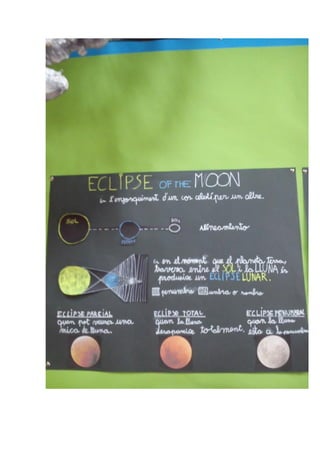 ECLIPSE OF THE MOON
és l'enfosquiment d'un cos celest per un altre.
SOL
Alineamiento
és en el moment que el planeta terra
travessa entre el SOL i la LLUNA es
produeix un ECLIPSE LUNAR.
penumbra umbra o sombra
ECLIPSE PARCIAL
quan pot veure una
mica de lluna.
ECLIPSE TOTAL
quan la lluna
desapareix totalment.
ECLIPSE PENUMBRAL
quan la lluna
està a la penumbra